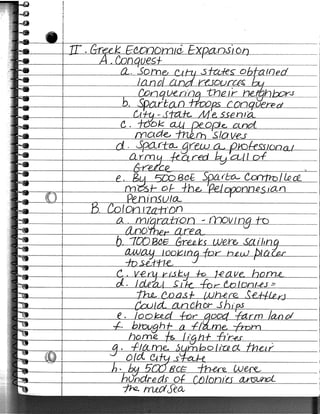 II. Greek Economic Expansion
A. Conquest
a. Some city states obtained
land and resources by
conquering their neighbors
b. Spartan troops conquered
City-State Messenia
c. took all people and
made them slaves
d. Sparta grew a professional
army feared by all of
Greece
e. By 500 BCE Sparta controlled
most of the Peloponnesian
Peninsula
B. Colonization
a. migration - moving to
another area
b. 700 BCE Greeks were sailing
away looking for new places
to settle
c. very risky to leave home
d. Ideal site for colonies =
the coast where settlers
could anchor ships
e. looked for good farm land
f. brought a flame from
home to light fires
g. flame symbolized their
old city state
h. by 500 BCE there were
hundreds of colonies around
the med Sea